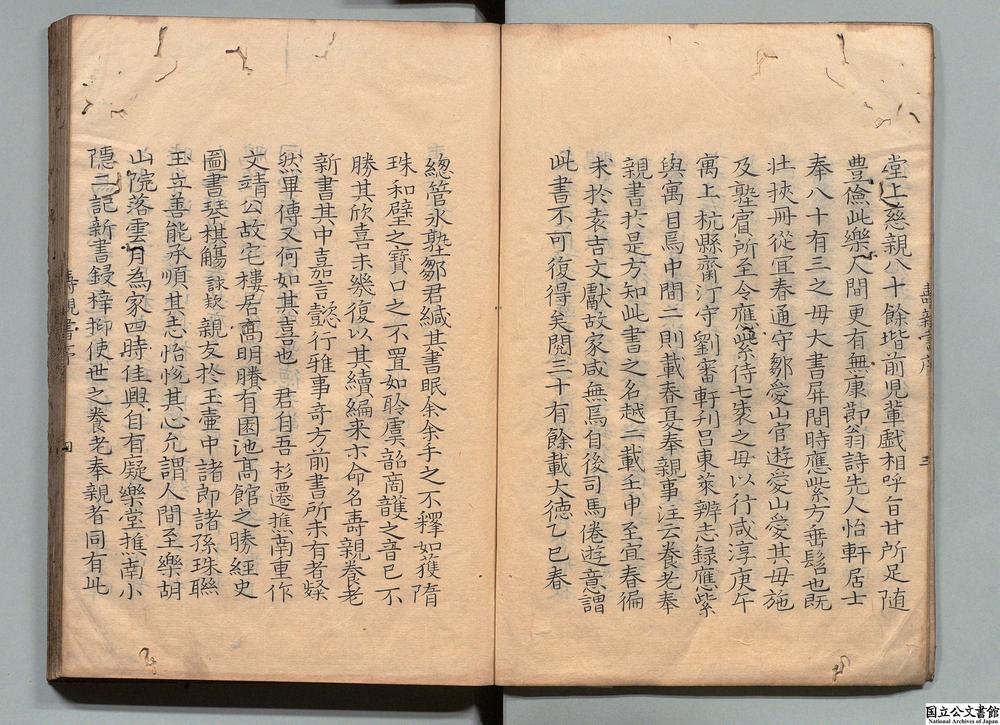 堂上慈親八十餘堦前兒輩戲相呼旨甘所足随
豊儉此樂人間更有無康節翁詩先人怡軒居士
奉八十有三之母大書屏間時應紫方垂髫也既
壮挾冊從冝春通守鄒愛山官遊愛山愛其母施
及塾賔所至令應紫侍七袠之母以行咸淳庚午
寓上杭縣齋汀守劉審軒刋吕東萊辨志録應紫
與寓目焉中間二則載春夏奉親事注云養老奉
親書於是方知此書之名越二載壬申至宜春徧
求於袁吉文獻故家咸無焉自後司馬倦遊意謂
此書不可復得矣閱三十有餘載大德乙巳春
壽親書序
三
總管永塾鄒君緘其書眎余余手之不釋如獲隋
珠和璧之寳口之不置如聆虞韶啇頀之音已不
勝其欣喜未㡬復以其續編来示命名壽親養老
新書其中嘉言懿行雅事奇方前書所未有者粲
然畢傳又何如其喜也 君自吾杉遷樵南重作
文靖公故宅樓居高明賸有園池髙館之勝經史
圖書琴棋觴詠欵親友於玉壷中諸郎諸孫珠聯
玉立善能承順其志怡恱其心允謂人間至樂胡
山院落雲月為家四時佳興自有凝樂堂樵南小
隱二記新書鋟梓抑使世之養老奉親者同有此
壽親書序
四
国立公文書館
National Archives of Japan